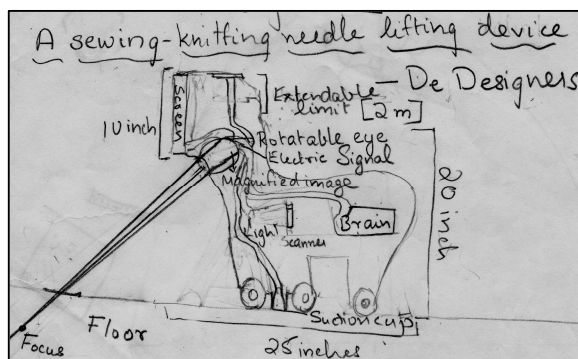 A sewing-knitting needle lifting device
— De Designers
Screen
10 inch
Extendable
limit [2 m]
Rotatable eye
Electric Signal
Magnified image
Light
Scanner
Brain
20 inch
Suction cup
Floor
Focus
25 inches